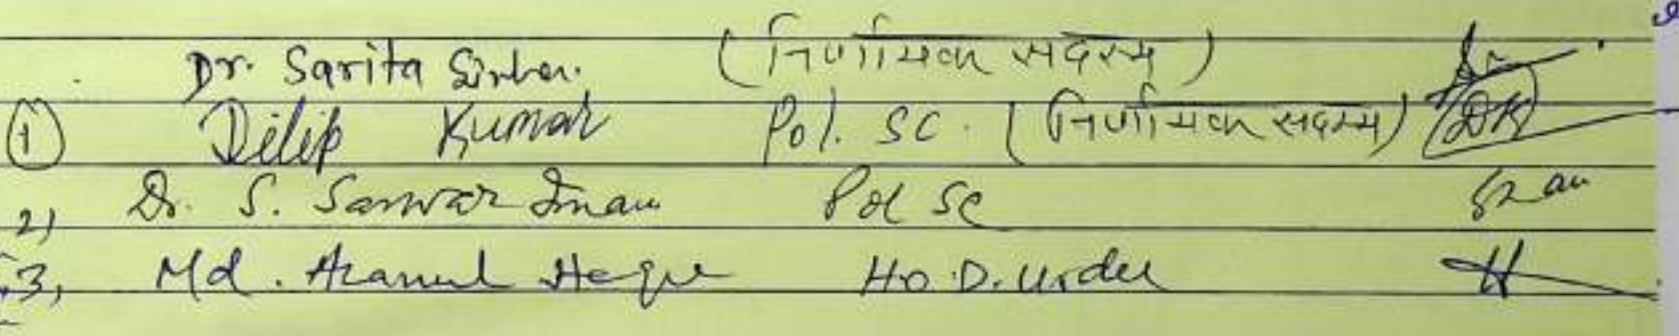 Dr. Sarita Sinha. (निर्णायक सदस्य)
① Dilip Kumar Pol. SC. (निर्णायक सदस्य) DK
2) Dr. S. Sarwar Imam Pol Sc
3, Md. Haque H.O.D. Urdu